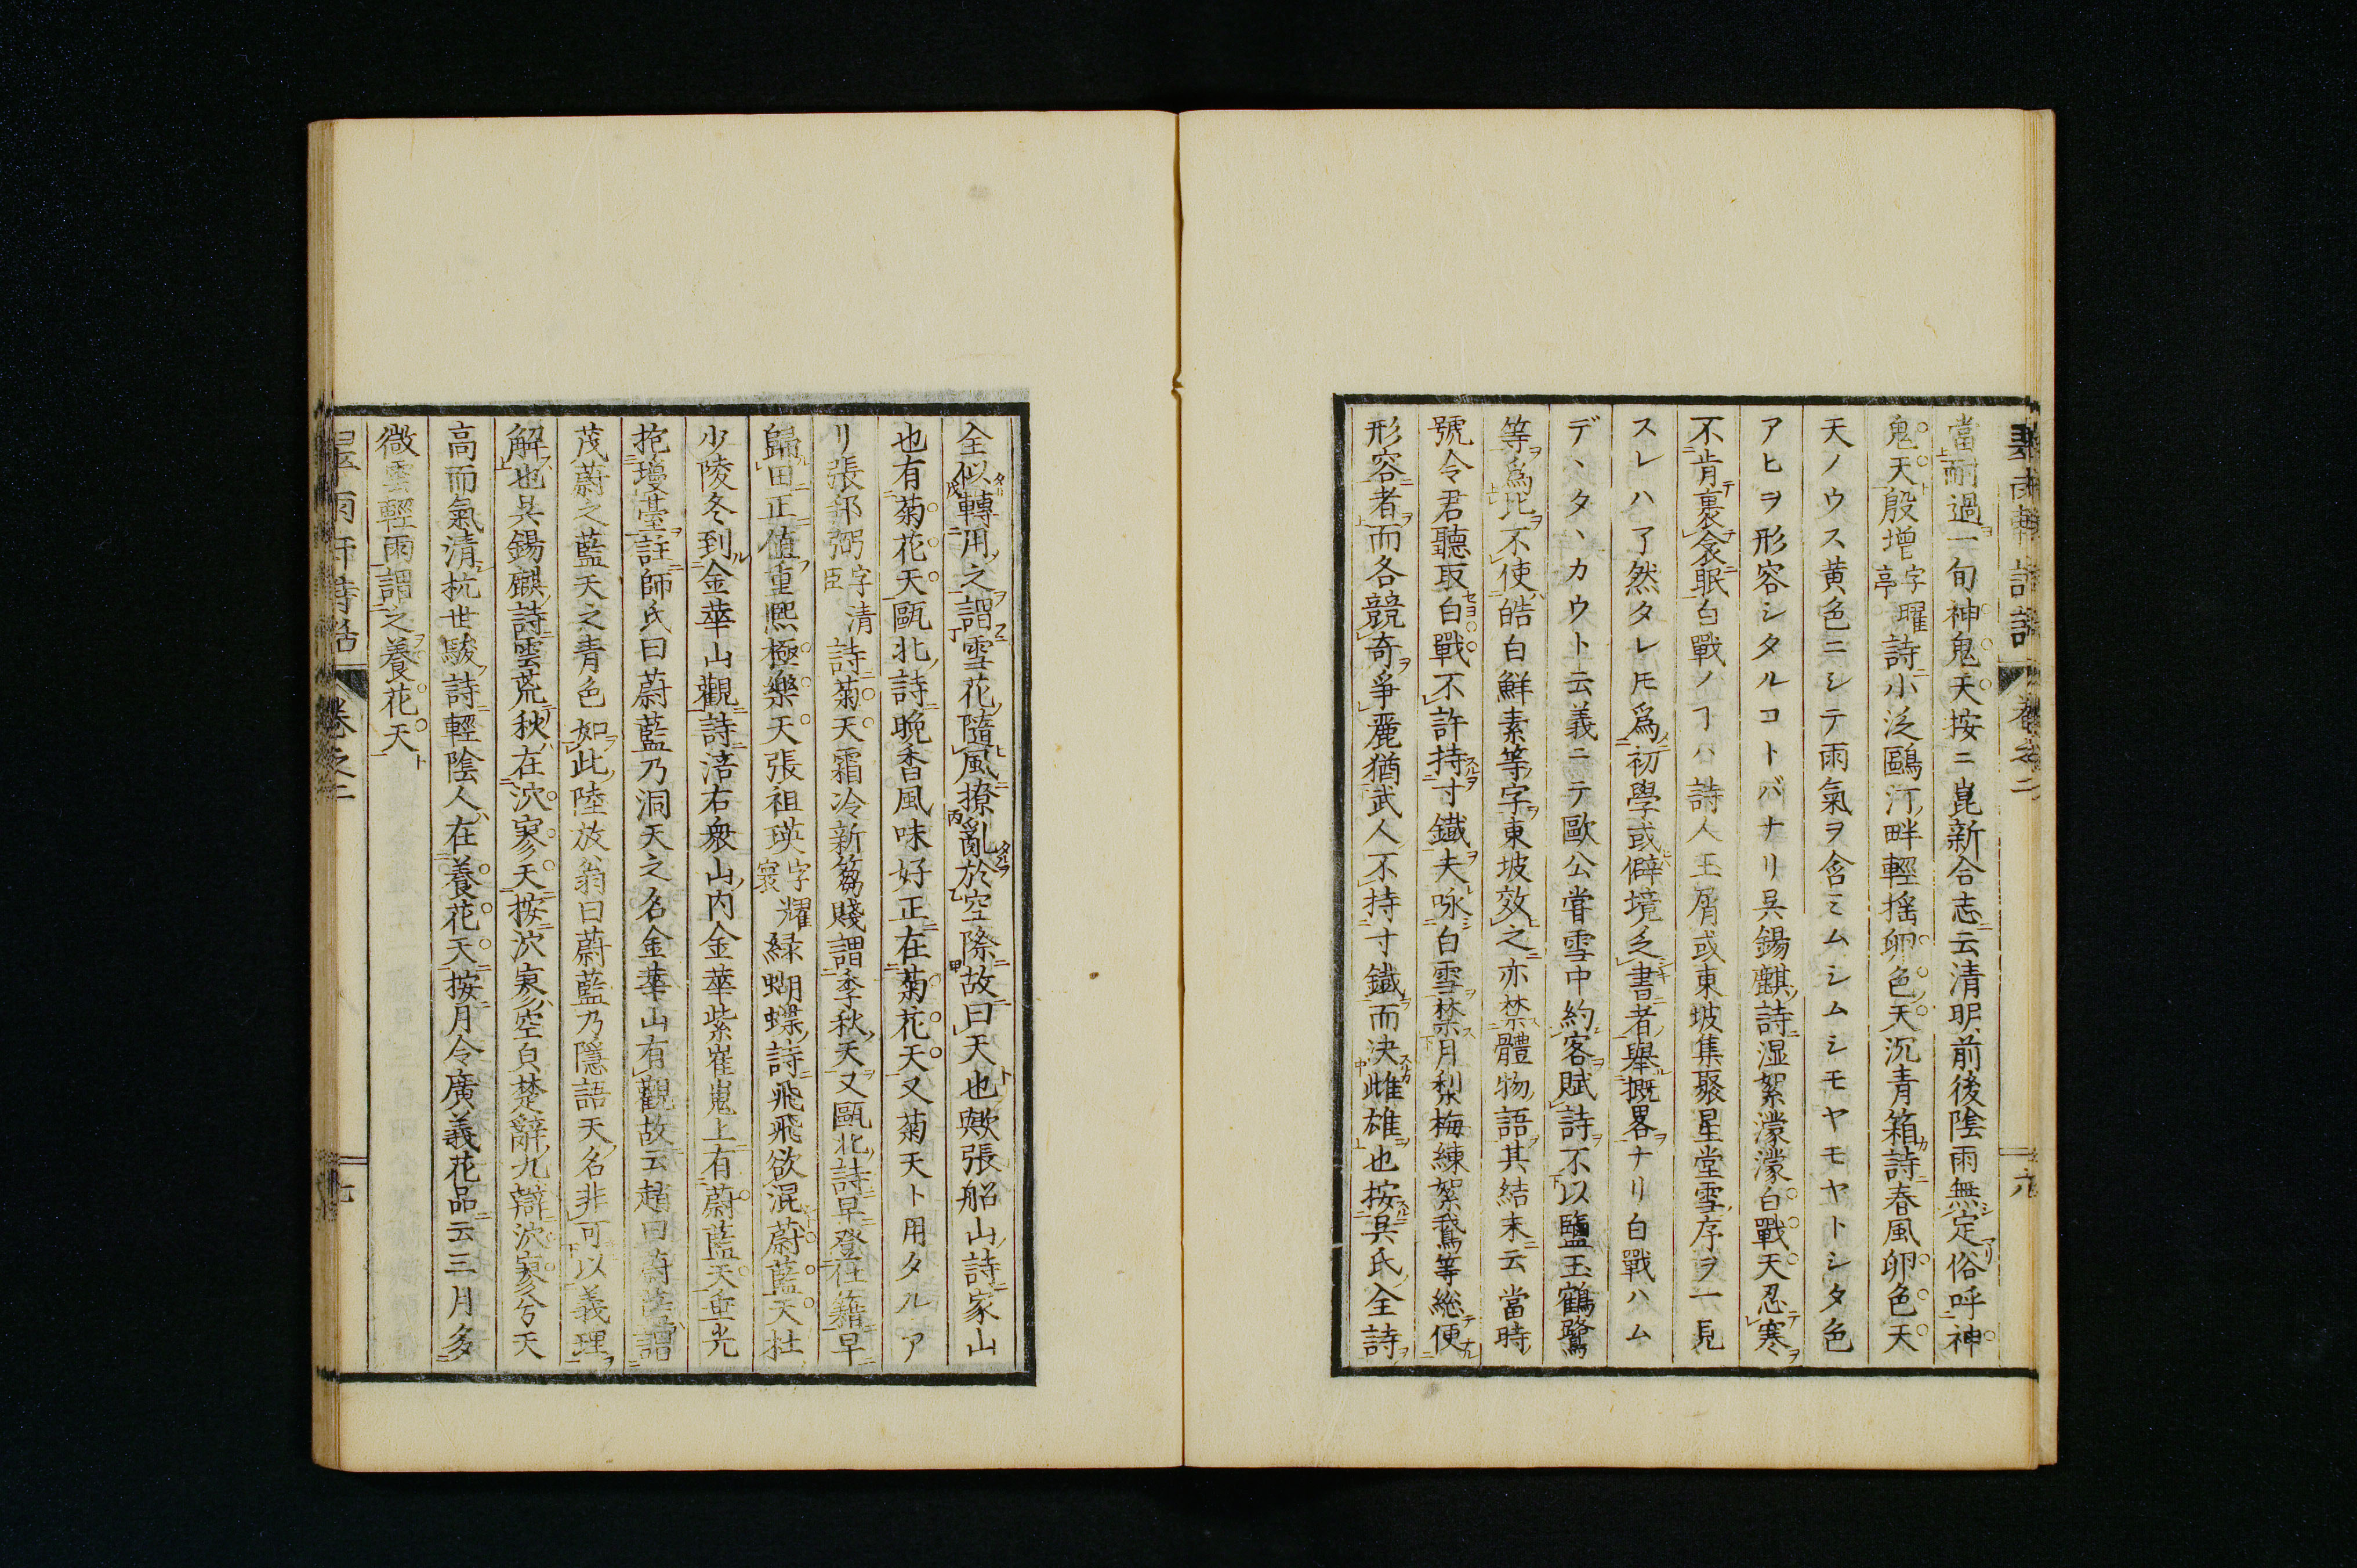 當耐過一旬神鬼天按ニ崑新合志云清明前後陰雨無定俗呼神
鬼天殷增字曜亭詩小泛鷗汀畔輕搖卵色天沉青箱詩春風卵色天
天ノウス黄色ニシテ雨氣ヲ含ミムシムシモヤモヤトシタ色
アヒヲ形容シタルコトバナリ呉錫麒詩湿絮濛濛白戰天忍寒
不肯裹衾眠白戰ノヿハ詩人玉屑或東坡集聚星堂雪序ヲ一見
スレハ了然タレ𪜈爲初學或僻境乏書者舉概畧ナリ白戰ハム
デヽタヽカウト云義ニテ歐公嘗雪中約客賦詩不以鹽玉鶴鷺
等爲比不使皓白鮮素等字東坡效之亦禁體物語其結末云當時
號令君聽取白戰不許持寸鐵夫咏白雪禁月梨梅練絮鵞等總便
形容者而各競奇爭麗猶武人不持寸鐵而決雌雄也按呉氏全詩
全似轉用之謂雪花隨風撩亂於空際故曰天也歟張船山詩家山
也有菊花天甌北詩晩香風味好正在菊花天又菊天ト用タルア
リ張邵弼字清臣詩菊天霜冷新篘賤謂季秋天又甌北詩早登在籍早
歸田正值重熙極樂天張祖瑛字耀寰緑蝴蝶詩飛飛欲混蔚藍天杜
少陵冬到金華山觀詩涪右衆山内金華紫崔嵬上有蔚藍天垂光
抱瓊臺註師氏曰蔚藍乃洞天之名金華山有觀故云趙曰蔚藍謂
茂蔚之藍天之青色如此陸放翁曰蔚藍乃隱語天名非可以義理
解也呉錫麒詩雲荒秋在泬寥天按泬寥空皃楚辭九辯泬寥兮天
高而氣清杭世駿詩輕陰人在養花天按月令廣義花品云三月多
微雲輕雨謂之養花天